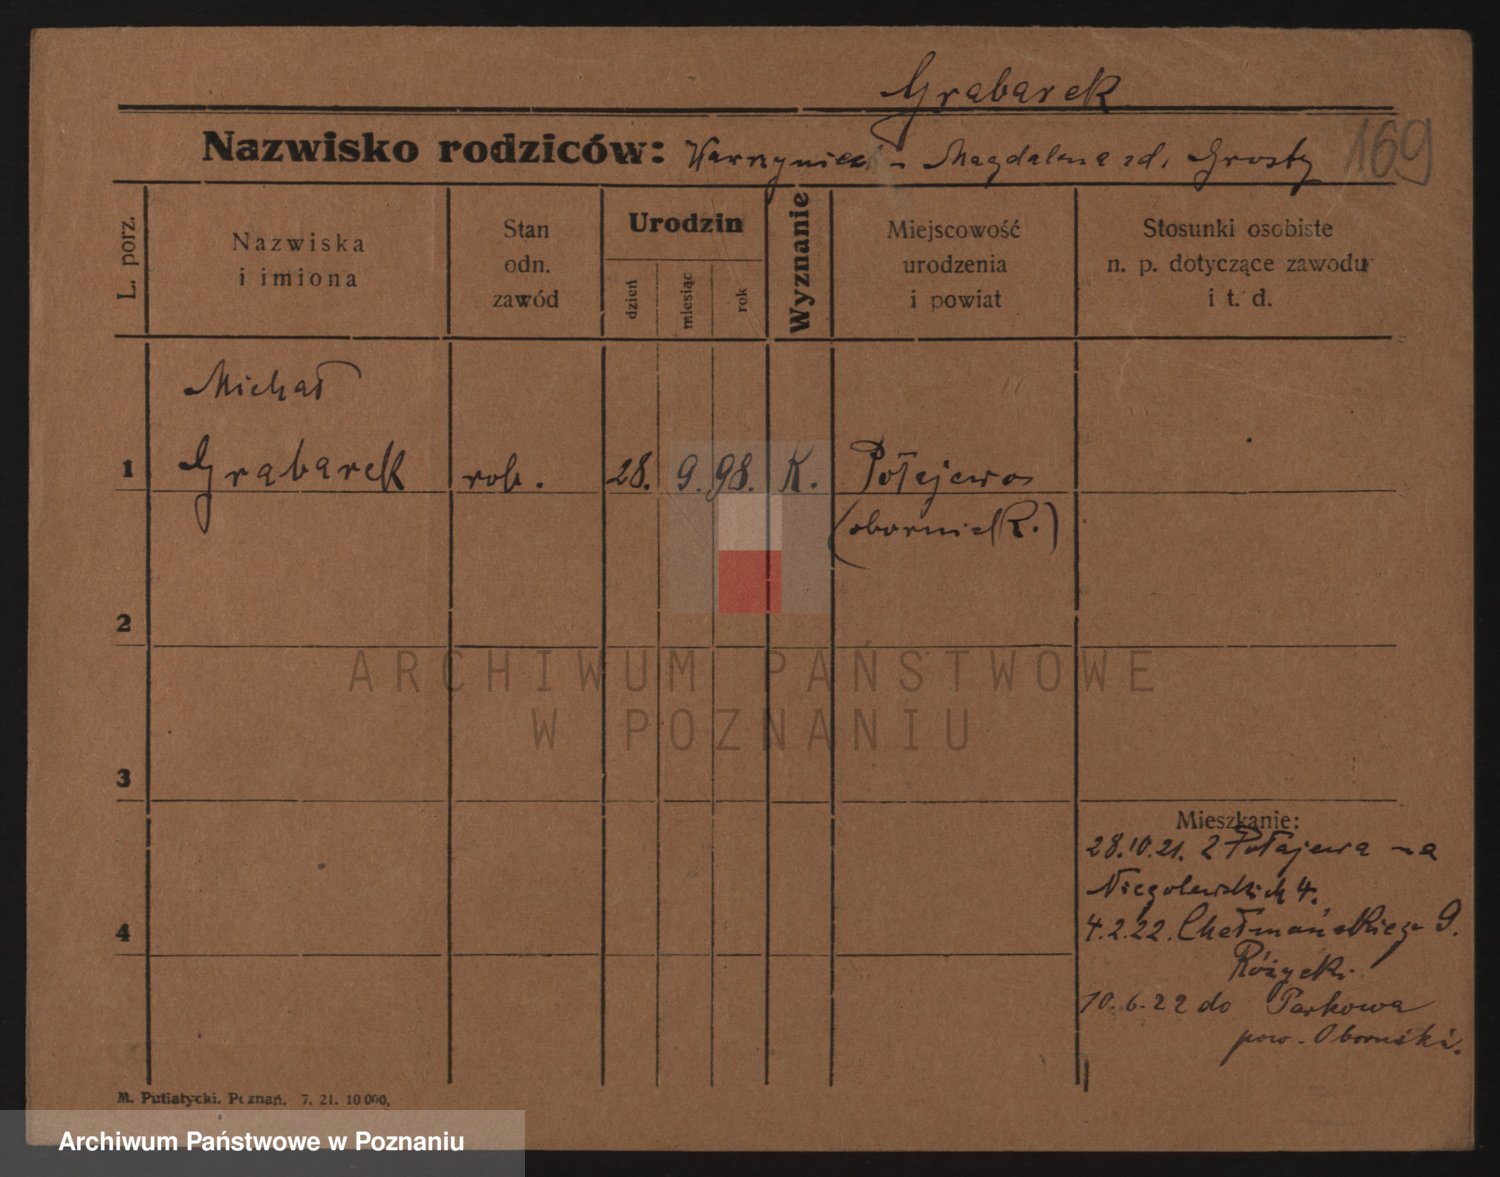 Grabarek
Nazwisko rodziców: Wawrzyniec - Magdalena zd. Grosty
169
L. porz.
Nazwiska
i imiona
Stan
odn.
zawód
Urodzin
dzień
miesiąc
rok
Wyznanie
Miejscowość
urodzenia
i powiat
Stosunki osobiste
n. p. dotyczące zawodu
i t. d.
Michał
1 Grabarek rob. 28. 9. 98. K. Połajewo
(obornick.)
2
3
4
Mieszkanie:
28.10.21. z Połajewa na
Niegolewskich 4.
4.2.22. Chełmońskiego 9.
Różycki.
10.6.22 do Parkowa
pow. Obornicki.
ARCHIWUM PAŃSTWOWE
W POZNANIU
M. Putiatycki. Poznań. 7. 21. 10 000.
Archiwum Państwowe w Poznaniu